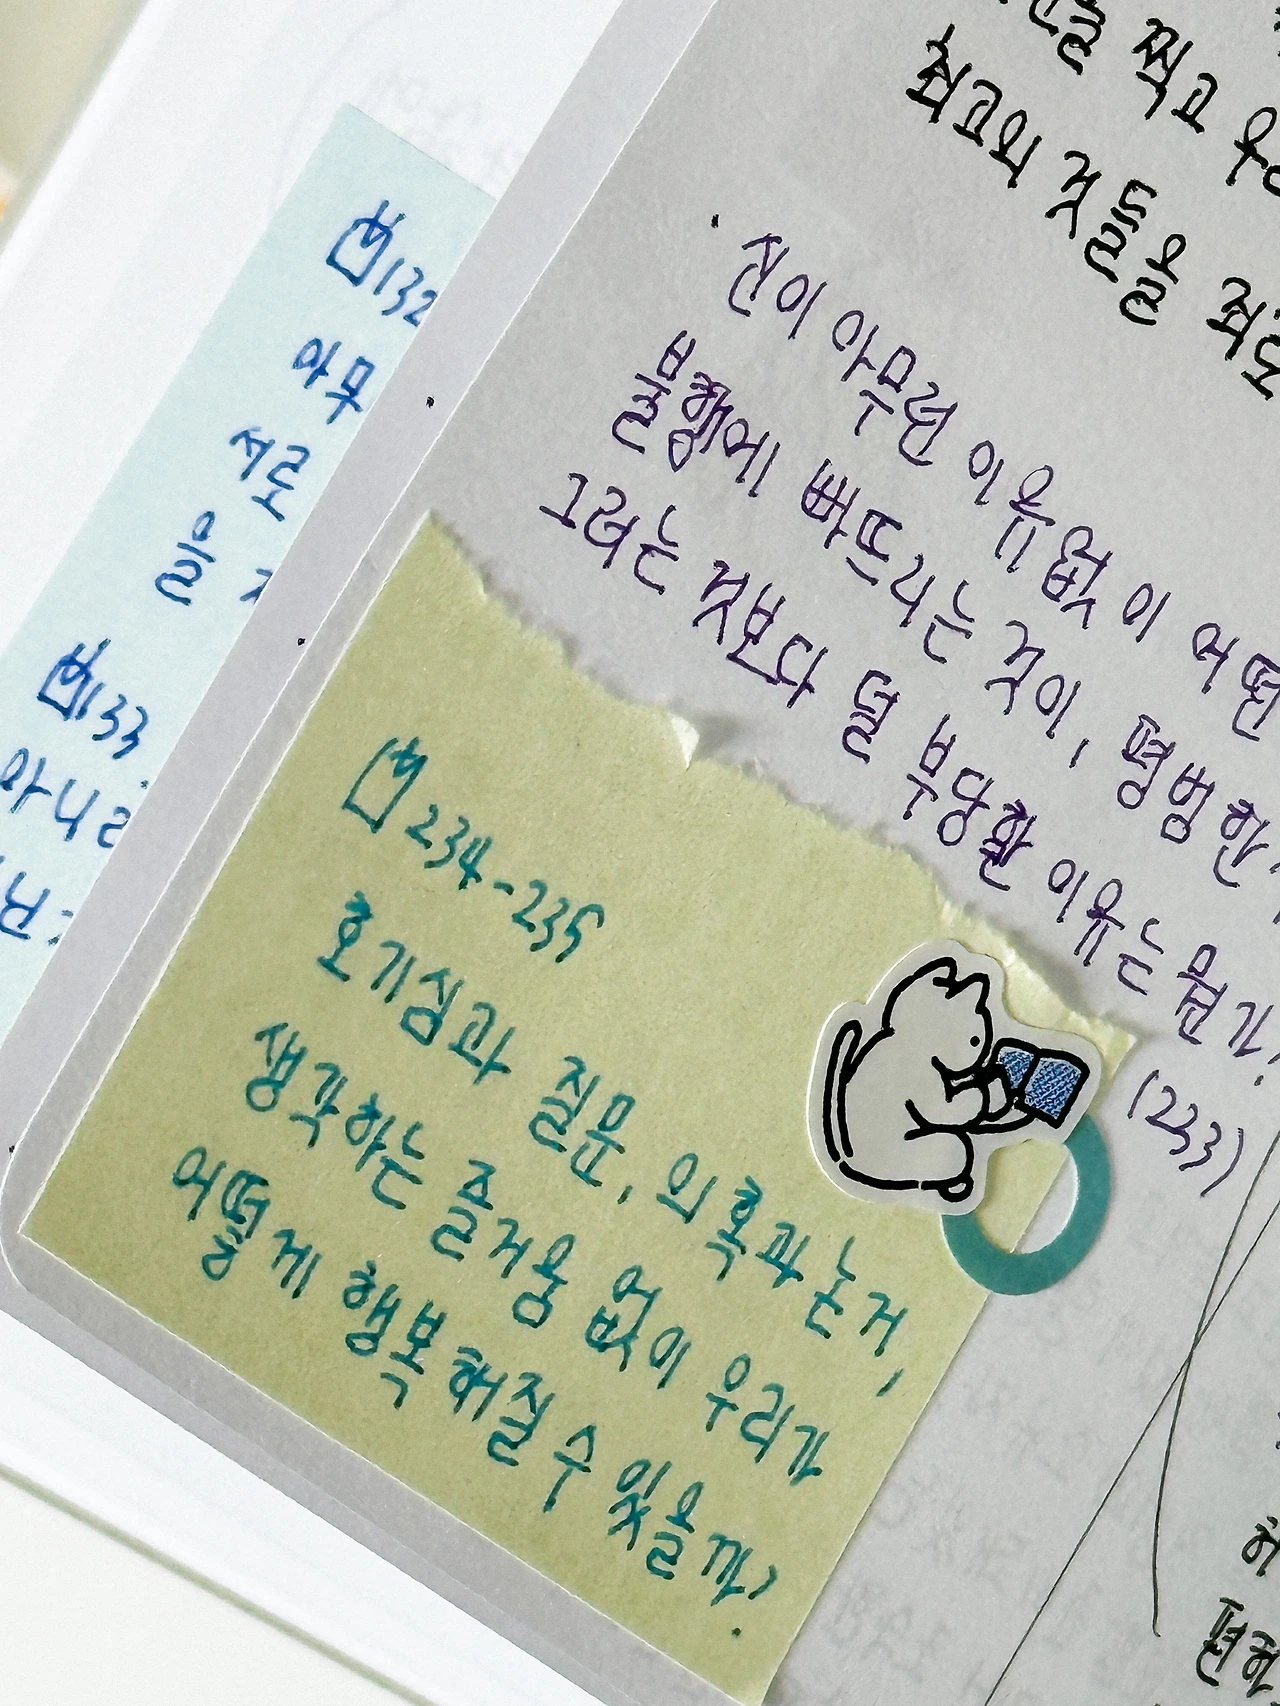 찍고
최고의 것들을
· 신이 아무런 이유 없이 어떤
불행에 빠뜨리는 것이, 평범한
그러는 것보다 덜 부당할 이유는 뭔가?
(233)
234-235
호기심과 질문, 의혹과 논거,
생각하는 즐거움 없이 우리가
어떻게 행복해질 수 있을까?
132
아무
서로
을
133
아니라